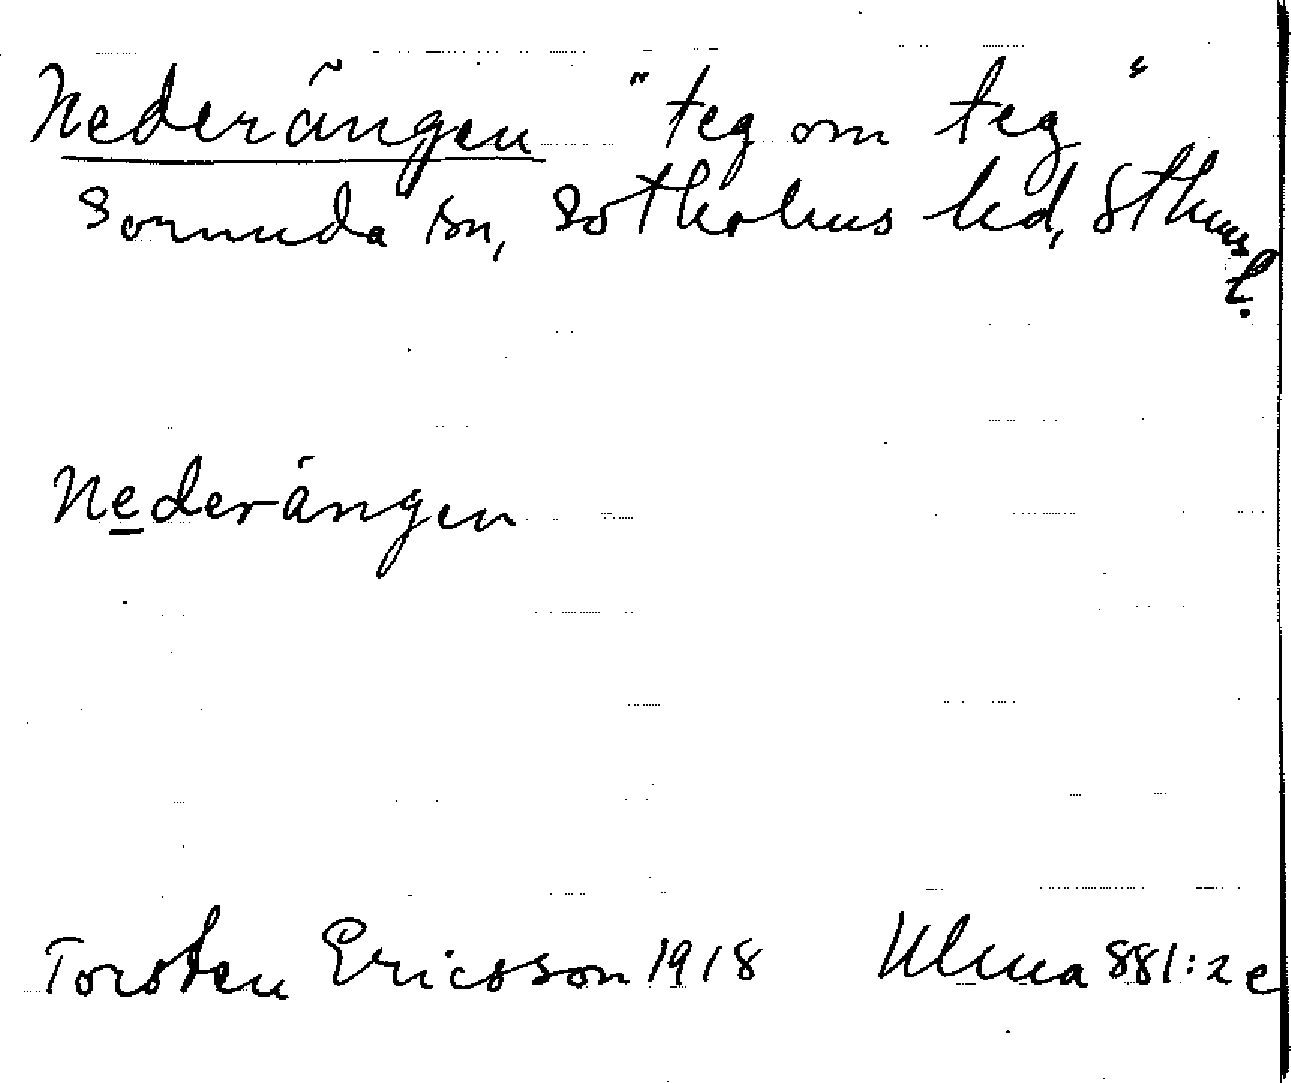 Nederängen "teg om teg"
Sorunda sn, Sotholms hd, Sthms
l.
Nederängen
Torsten Ericsson 1918 Ulma 881:2 e